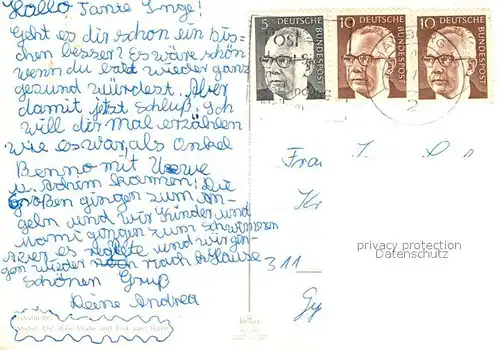 Hallo Tante Inge!
Geht es dir schon ein bis
chen besser? Es wäre schön
wenn du bald wieder ganz
gesund würdest. Aber
damit jetzt Schluß. Ich
will dir mal erzählen
wie es war, als Onkel
Benno mit Uwe
u. kamen! Die
Großen gingen zum An-
geln und wir Kinder und
Mami gingen zum Schwimmen
Aber es regnete und wir gin-
gen wieder nach Hause
Schönen Gruß
Deine Andrea
5
DEUTSCHE
BUNDESPOST
10
DEUTSCHE
BUNDESPOST
10
DEUTSCHE
BUNDESPOST
2
Frau
311
privacy protection
Datenschutz